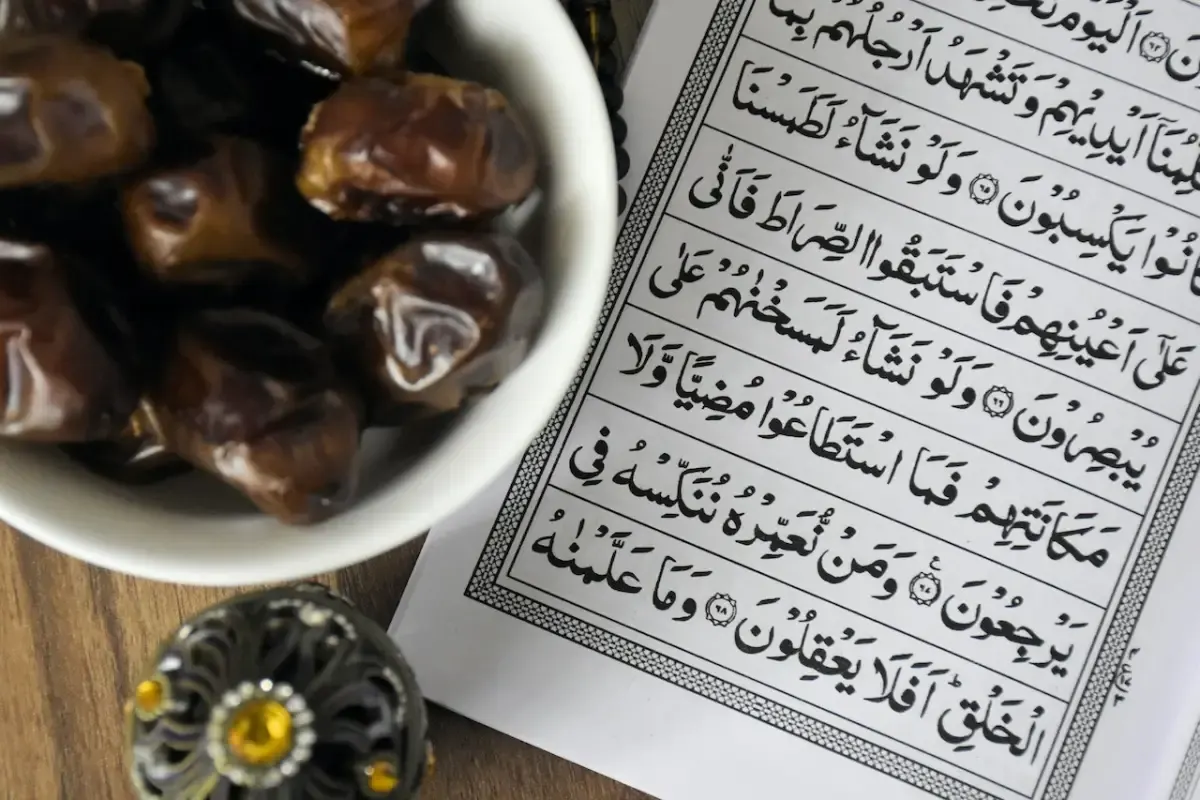 اَلْيَوْمَ
اَيْدِيْهِمْ وَتَشْهَدُ اَرْجُلُهُمْ بِمَا
كَانُوْا يَكْسِبُوْنَ ﴿٦٥﴾ وَلَوْ نَشَآءُ لَطَمَسْنَا
عَلٰٓى اَعْيُنِهِمْ فَاسْتَبَقُوا الصِّرَاطَ فَاَنّٰى
يُبْصِرُوْنَ ﴿٦٦﴾ وَلَوْ نَشَآءُ لَمَسَخْنٰهُمْ عَلٰى
مَكَانَتِهِمْ فَمَا اسْتَطَاعُوْا مُضِيًّا وَّلَا
يَرْجِعُوْنَ وَمَنْ نُّعَمِّرْهُ نُنَكِّسْهُ فِى
الْخَلْقِ ؕ اَفَلَا يَعْقِلُوْنَ ﴿٦٨﴾ وَمَا عَلَّمْنٰهُ